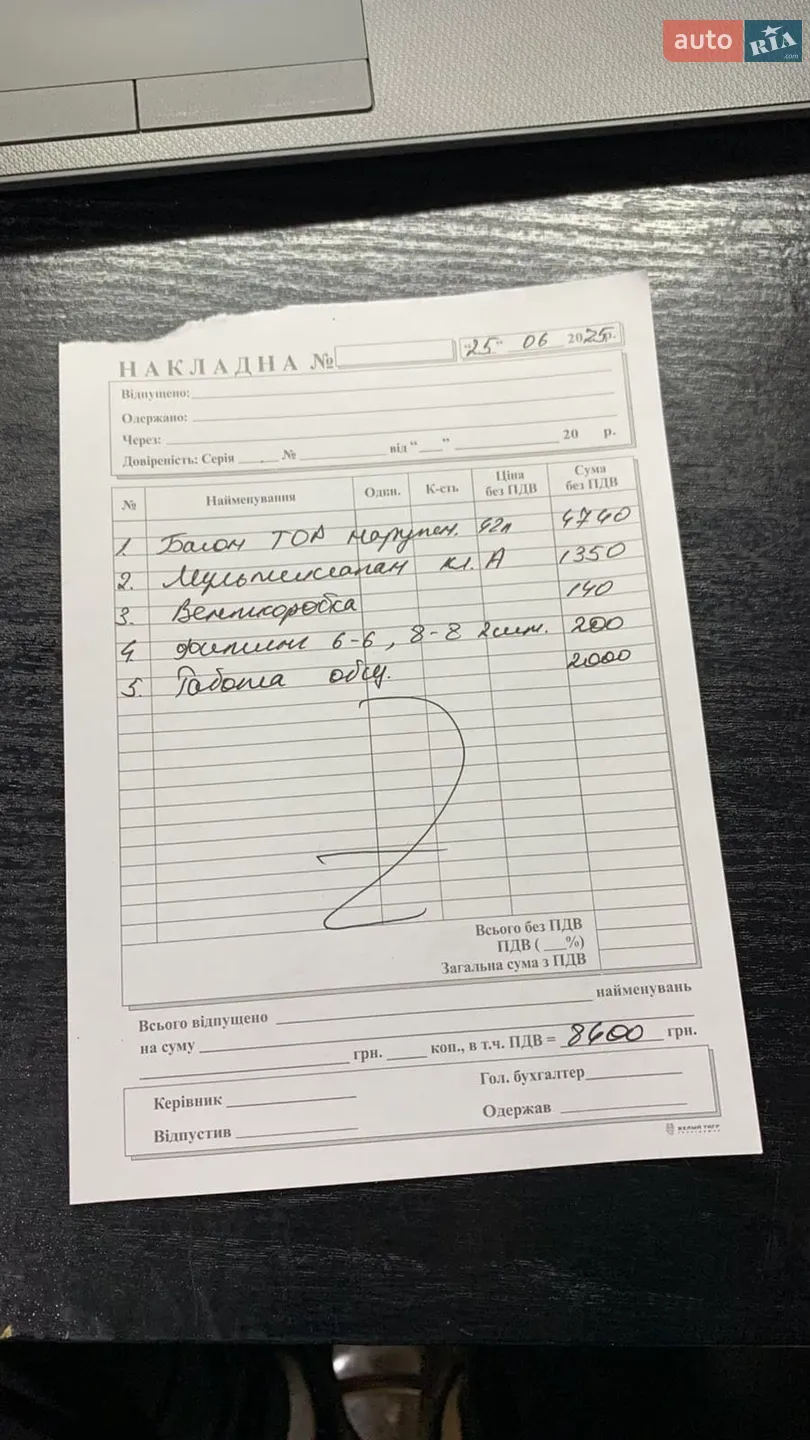 auto RIA .com
НАКЛАДНА № "25" 06 2025р.
Відпущено:
Одержано:
Через:
Довіреність: Серія № від " " 20 р.
№ Найменування Один. К-сть Ціна без ПДВ Сума без ПДВ
1. Балон ТОР наружн. 42л 4740
2. Мультиклапан кл. А 1350
3. Венткоробка 140
4. Фитинг 6-6, 8-8 2шт. 200
5. Работа обсу. 2000
Всього без ПДВ
ПДВ ( %)
Загальна сума з ПДВ
Всього відпущено найменувань
на суму грн. коп., в т.ч. ПДВ = 8400 грн.
Керівник Гол. бухгалтер
Відпустив Одержав
БЕЛЫЙ ТИГР